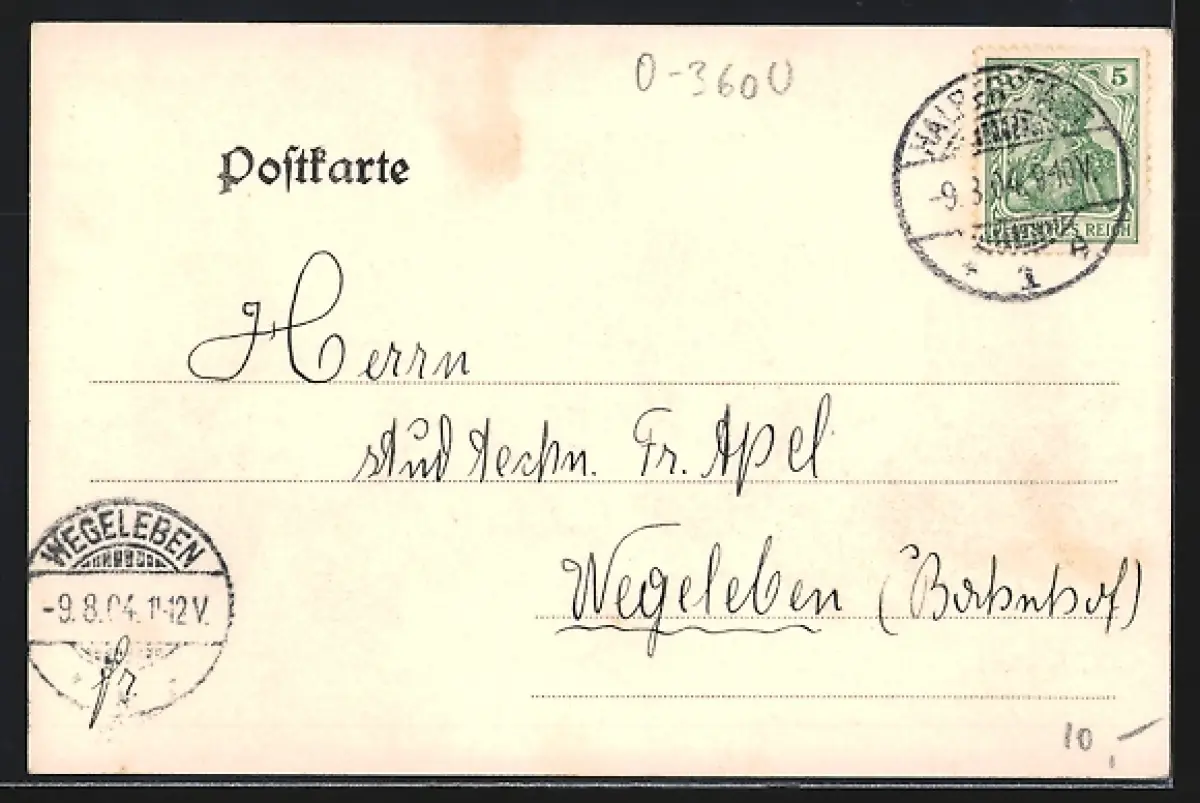 O-3600
5
HALBERSTADT
-9.8.04. 9-10V.
DEUTSCHES REICH
* 1 A
Poſtkarte
Herrn
stud techn. Fr. Apel
Wegeleben (Bahnhof)
WEGELEBEN
-9.8.04. 11-12V.
10,-